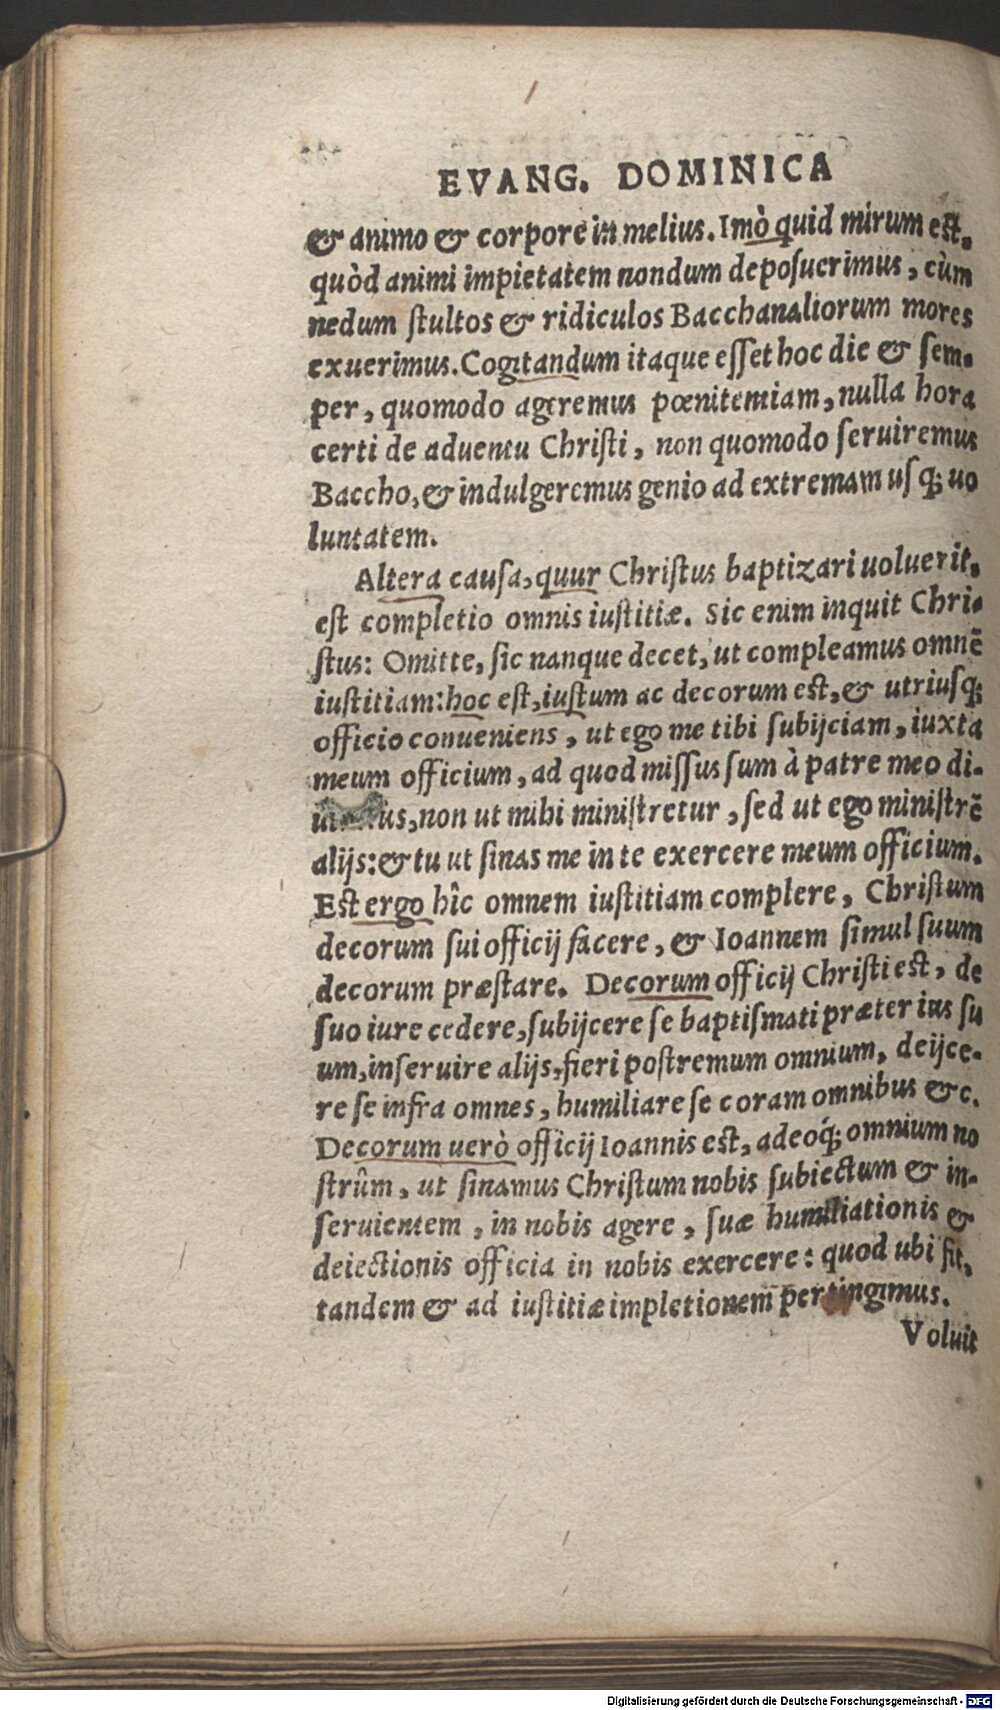 EVANG. DOMINICA
& animo & corpore in melius. Imò quid mirum est,
quòd animi impietatem nondum deposuerimus, cùm
nedum stultos & ridiculos Bacchanaliorum mores
exuerimus. Cogitandum itaque esset hoc die & sem-
per, quomodo ageremus pœnitentiam, nulla hora
certi de aduentu Christi, non quomodo seruiremus
Baccho, & indulgeremus genio ad extremam usq; uo
luntatem.
Altera causa, quur Christus baptizari uoluerit,
est completio omnis iustitiæ. Sic enim inquit Chri-
stus: Omitte, sic nanque decet, ut compleamus omnẽ
iustitiam: hoc est, iustum ac decorum est, & utriusq;
officio conueniens, ut ego me tibi subijciam, iuxta
meum officium, ad quod missus sum à patre meo di-
non ut mihi ministretur, sed ut ego ministrẽ
alijs: & tu ut sinas me in te exercere meum officium.
Est ergo hîc omnem iustitiam complere, Christum
decorum sui officij facere, & Ioannem simul suum
decorum præstare. Decorum officij Christi est, de
suo iure cedere, subijcere se baptismati præter ius su
um, inseruire alijs, fieri postremum omnium, deijce-
re se infra omnes, humiliare se coram omnibus &c.
Decorum uerò officij Ioannis est, adeoq́; omnium no
strûm, ut sinamus Christum nobis subiectum & in-
seruientem, in nobis agere, suæ humiliationis &
deiectionis officia in nobis exercere: quod ubi fit,
tandem & ad iustitiæ impletionem pertingimus.
Voluit
Digitalisierung gefördert durch die Deutsche Forschungsgemeinschaft - DFG